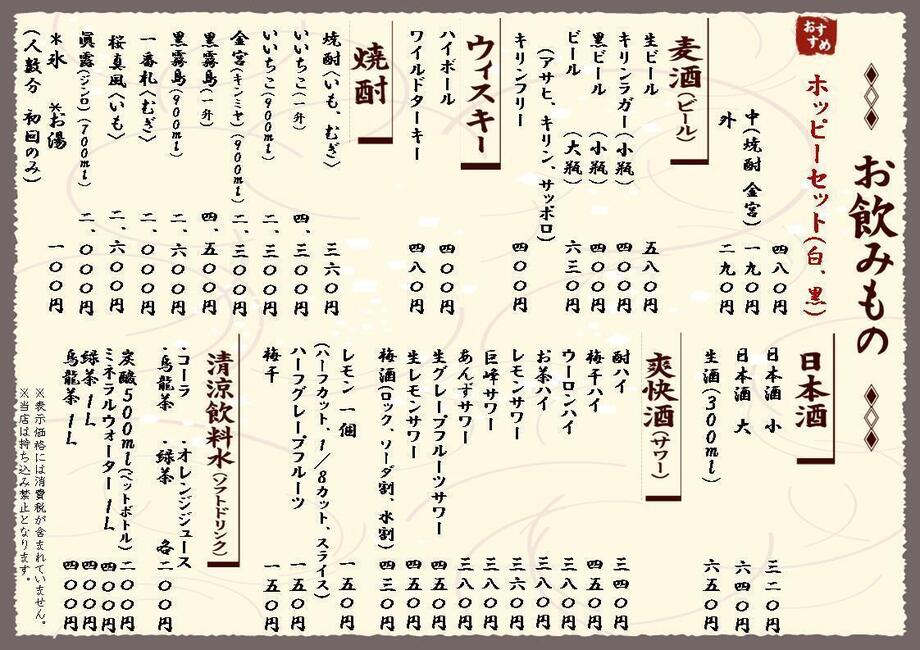 お飲みもの
おすすめ
ホッピーセット(白、黒) 四八〇円
中(焼酎 金宮) 一九〇円
外 二九〇円
麦酒(ビール)
生ビール 五八〇円
キリンラガー(小瓶) 四〇〇円
黒ビール (小瓶) 四〇〇円
ビール (大瓶) 六三〇円
(アサヒ、キリン、サッポロ)
キリンフリー 四〇〇円
ウィスキー
ハイボール 四〇〇円
ワイルドターキー 四八〇円
焼酎
焼酎〈いも、むぎ〉 三六〇円
いいちこ(一升) 四、三〇〇円
いいちこ(900ml) 二、三〇〇円
金宮(キンミヤ)(900ml) 二、三〇〇円
黒霧島(一升) 四、五〇〇円
黒霧島(900ml) 二、六〇〇円
一番札〈むぎ〉 二、〇〇〇円
桜真風〈いも〉 二、六〇〇円
眞露(ジンロ)(700ml) 二、〇〇〇円
*氷 *お湯 一〇〇円
(人数分 初回のみ)
日本酒
日本酒 小 三二〇円
日本酒 大 六四〇円
生酒(300ml) 六五〇円
爽快酒(サワー)
酎ハイ 三四〇円
梅干ハイ 四五〇円
ウーロンハイ 三八〇円
お茶ハイ 三八〇円
レモンサワー 三六〇円
巨峰サワー 三八〇円
あんずサワー 三八〇円
生グレープフルーツサワー 四五〇円
生レモンサワー 四五〇円
梅酒(ロック、ソーダ割、水割) 四三〇円
レモン 一個 一五〇円
(ハーフカット、1/8カット、スライス)
ハーフグレープフルーツ 一五〇円
梅干 一五〇円
清涼飲料水(ソフトドリンク)
・コーラ ・オレンジジュース
・烏龍茶 ・緑茶 各二〇〇円
炭酸500ml(ペットボトル) 二〇〇円
ミネラルウォーター 1L 四〇〇円
緑茶 1L 四〇〇円
烏龍茶 1L 四〇〇円
※表示価格には消費税が含まれていません。
※当店は持ち込み禁止となります。